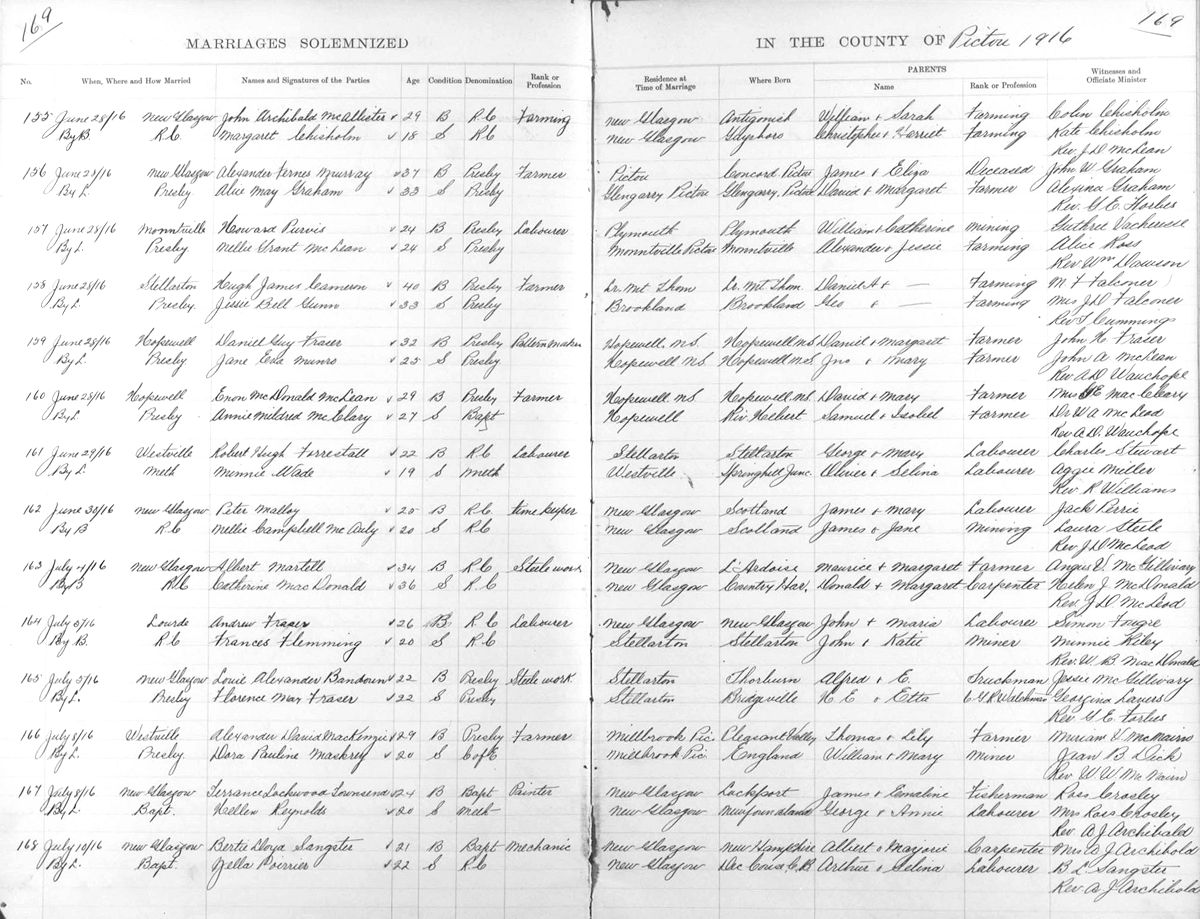 169
169
MARRIAGES SOLEMNIZED IN THE COUNTY OF Pictou 1916
No. When, Where and How Married Names and Signatures of the Parties Age Condition Denomination Rank or Profession Residence at Time of Marriage Where Born PARENTS Name Rank or Profession Witnesses and Officiate Minister
155 June 28/16 New Glasgow John Archibald McAllister v 29 B R C Farming New Glasgow Antigonish William & Sarah Farming Colin Chisholm
By B. R C Margaret Chisholm v 18 S R C New Glasgow Guysboro Christopher & Harriet Farming Kate Chisholm
Rev J D McLean
156 June 28/16 New Glasgow Alexander Murray v 37 B Presby Farmer Pictou Concord Pictou James & Eliza Deceased John W Graham
By L Presby Alice May Graham v 33 S Presby Glengarry Pictou Glengarry, Pictou David & Margaret Farmer Alexina Graham
Rev. G. E. Forbes
157 June 28/16 Monntville Howard Purvis v 24 B Presby Labourer Plymouth Plymouth William & Catherine Mining Guthrie
By L Presby Nellie Grant McLean v 24 S Presby Monntville Pictou Monntville Alexander & Jessie Farming Alice Ross
Rev Wm Dawson
158 June 28/16 Stellarton Hugh James Cameron v 40 B Presby Farmer Lr. Mt Thom Lr. Mt Thom Daniel A & — Farming M F Falconer
By L Presby. Jessie Bell Gunn v 33 S Presby Brookland Brookland Geo & — Farming Mrs J D Falconer
Rev T Cummings
159 June 28/16 Hopewell Daniel Guy Fraser v 32 B Presby Patternmaker Hopewell N.S. Hopewell N S Daniel & Margaret Farmer John H Fraser
By L Presby Jane Eva Munro v 25 S Presby Hopewell N S Hopewell N S Jno & Mary Farmer John A McLean
Rev A D Wauchope
160 June 28/16 Hopewell Enon McDonald McLean v 29 B Presby Farmer Hopewell N S Hopewell N S David & Mary Farmer Mrs E MacCleary
By L Presby Annie Mildred McClary v 27 S Bapt Hopewell Riv. Hebert Samuel & Isobel Farmer Dr W A McLeod
Rev A. D. Wauchope
161 June 29/16 Westville Robert Hugh Forrestall v 22 B R C Labourer Stellarton Stellarton George & Mary Labourer Charles Stewart
By L Meth Minnie Wade v 19 S Meth Westville Springhill Junc. Oliver & Selina Labourer Aggie Miller
Rev. R Williams
162 June 30/16 New Glasgow Peter Malloy v 20 B R C time keeper New Glasgow Scotland James & Mary Labourer Jack Perrie
By B R C Nellie Campbell McAuly v 20 S R C New Glasgow Scotland James & Jane Mining Laura Steele
Rev J D McLeod
163 July 4/16 New Glasgow Albert Martell v 34 B R C Steele work New Glasgow L'Ardoise Maurice & Margaret Farmer Angus V McGillivary
By B R C Catherine MacDonald v 36 S R.C New Glasgow Country Har. Donald & Margaret Carpenter Helen J McDonald
Rev. J D McLeod
164 July 3/16 Lourde Andrew Fraser v 26 B R C Labourer New Glasgow New Glasgow John & Maria Labourer Simon Fougre
By B. R C Frances Flemming v 20 S R C Stellarton Stellarton John & Katie Miner Minnie Riley
Rev. W. B. MacDonald
165 July 3/16 New Glasgow Louie Alexander v 22 B Presby Steele work Stellarton Thorburn Alfred & E. Truckman Jessie McGillivary
By L. Presby Florence May Fraser v 22 S Presby Stellarton Bridgeville H E & Etta C.G.R Watchman Georgina
Rev. G. E. Forbes
166 July 5/16 Westville Alexander David MacKenzie v 29 B Presby Farmer Millbrook Pic Pleasant Valley Thomas & Lily Farmer Miriam V McNairn
By L. Presby. Dora Pauline Mackrey v 20 S C of E Millbrook Pic. England William & Mary Miner Jean B Dick
Rev W W McNairn
167 July 8/16 New Glasgow Terrance Lockwood Townsend v 24 B Bapt Painter New Glasgow Lockport James & Emaline Fisherman Ross Crosley
By L Bapt. Hellen Reynolds v 20 S Meth New Glasgow Newfoundland George & Annie Labourer Mrs Ross Crosley
Rev. A. J. Archibald
168 July 10/16 New Glasgow Bertie Lloyd Sangster v 21 B Bapt Mechanic New Glasgow New Hampshire Albert & Marjorie Carpenter Mrs A J Archibold
By L. Bapt. Zella Poirrier v 22 S R C New Glasgow C.B. Arthur & Selina Labourer B L Sangster
Rev A J Archibold